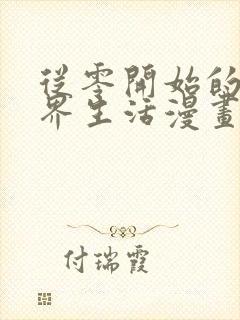 從零開始的
界生活漫畫
付瑞霞